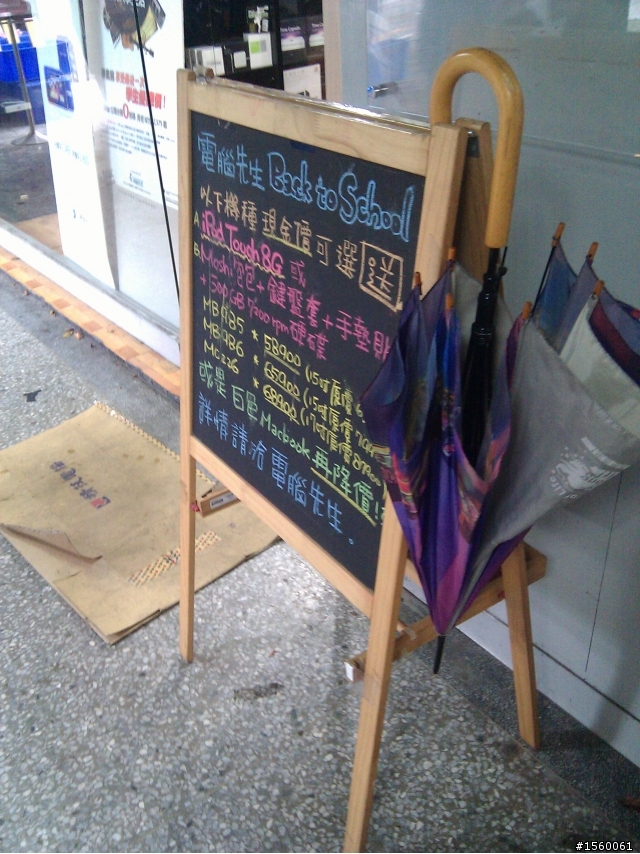 電腦先生 Back to School
以下機種現金價可選送
A. iPod Touch 8G 或
B. Moshi 包包+鍵盤套+手墊貼
+ 500GB 7200 rpm 硬碟
MB985 * 58900 (15吋原價
MB986 * 65900 (15吋原價
MC226 * 68900 (17吋原價 87900
或是 白色 Macbook 再降價!
詳情請洽 電腦先生。
#1560061